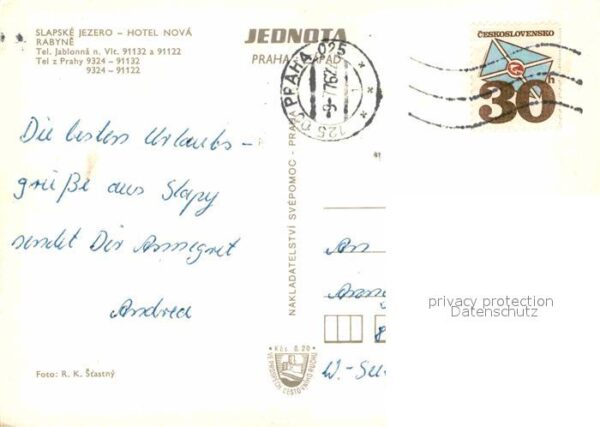 SLAPSKÉ JEZERO – HOTEL NOVÁ
RABYNĚ
Tel. Jablonná n. Vlt. 91132 a 91122
Tel z Prahy 9324 – 91132
9324 – 91122
JEDNOTA
PRAHA ZÁPAD
PRAHA 025
125
ČESKOSLOVENSKO
30h
Die besten Urlaubs-
grüße aus Slapy
sendet Dir Annegret
Andrea
An
NAKLADATELSTVÍ SVÉPOMOC - PRAHA
privacy protection
Datenschutz
8
W.-
Kčs 0,20
VE PROSPĚCH CESTOVNÍHO RUCHU
Foto: R. K. Šťastný